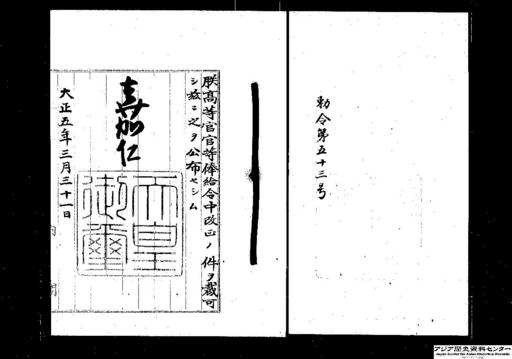 勅令第五十三号
朕高等官官等俸給令中改正ノ件ヲ裁可
シ茲ニ之ヲ公布セシム
嘉仁
天皇御璽
大正五年三月三十一日
アジア歴史資料センター
Japan Center for Asian Historical Records